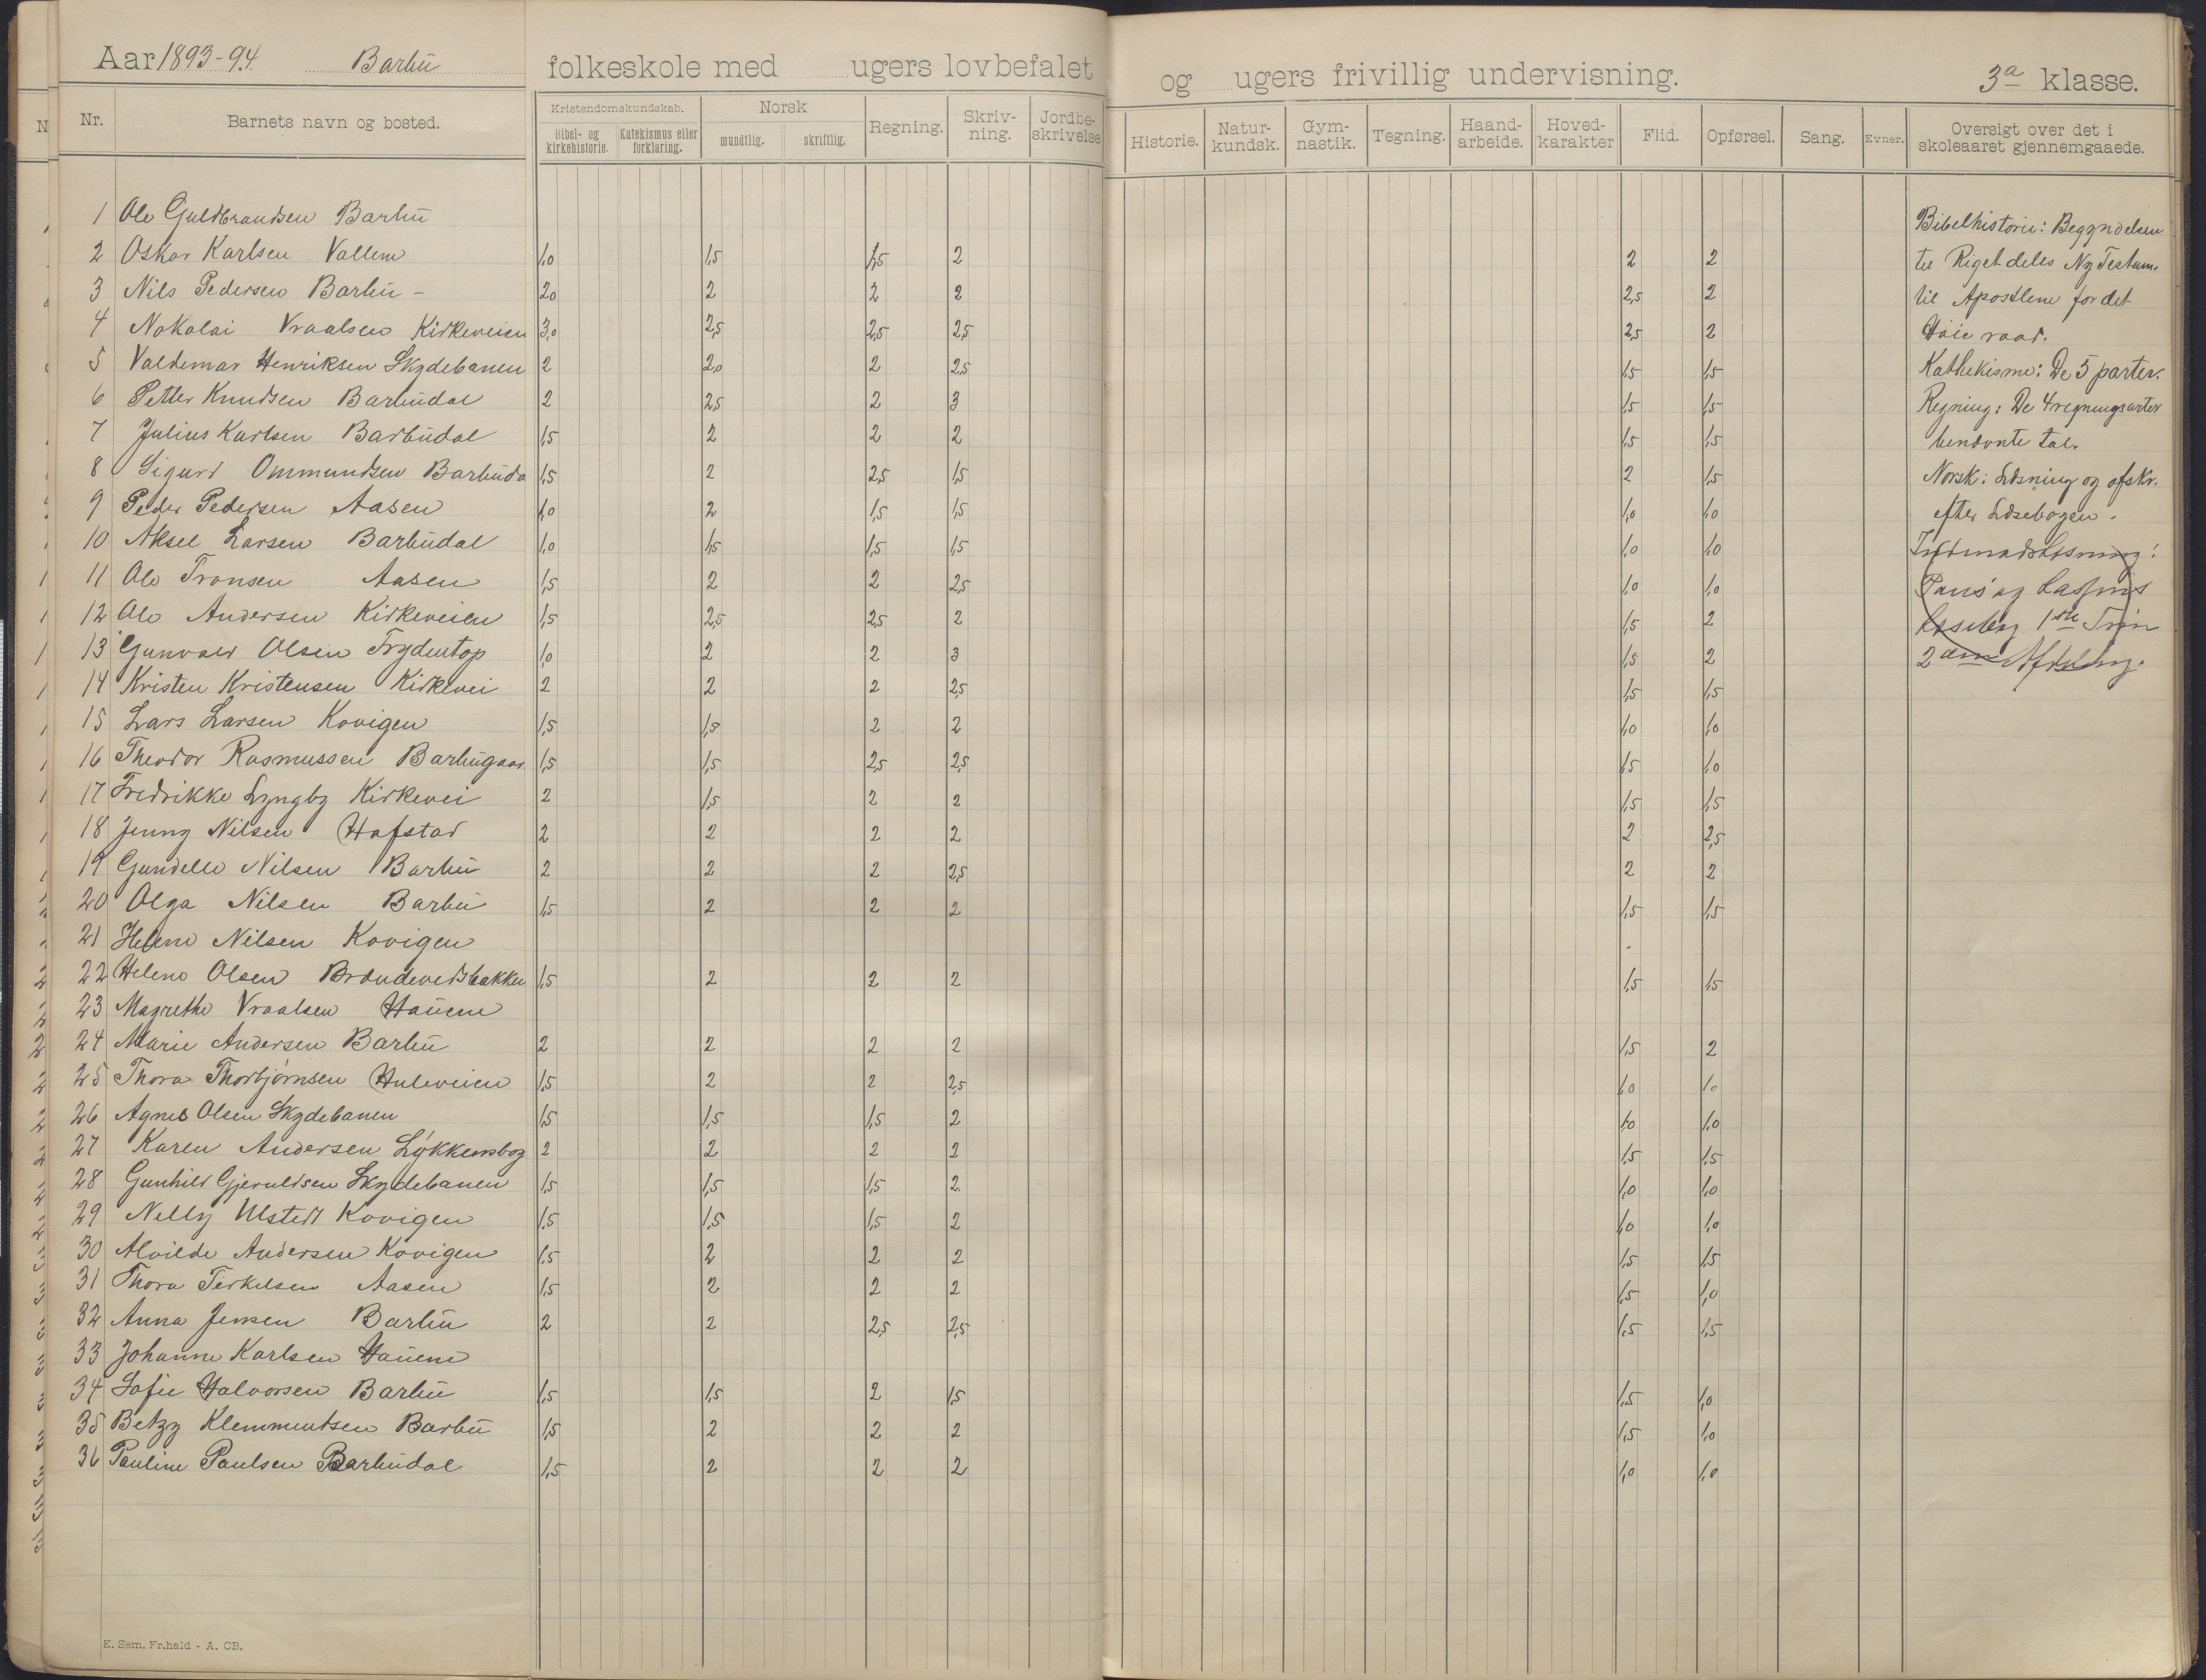 Aar 1893-94. Barbu folkeskole med ugers lovbefalet og ugers frivillig undervisning. 3a klasse.
Nr. Barnets navn og bosted. Kristendomskundskab. Bibel- og kirkehistorie. Katekismus eller forklaring. Norsk mundtlig. skriftlig. Regning. Skriv-ning. Jordbe-skrivelse Historie. Natur-kundsk. Gym-nastik. Tegning. Haand-arbeide. Hoved-karakter Flid. Opførsel. Sang. Evner. Oversigt over det i skoleaaret gjennemgaaede.
1 Ole Guldbrandsen Barbu
2 Oskar Karlsen Vallem 1,0 1,5 1,5 2 2 2
3 Nils Pedersen Barbu - 2,0 2 2 2 2,5 2
4 Nokolai Vraalsen Kirkeveien 3,0 2,5 2,5 2,5 2,5 2
5 Valdemar Henriksen Skydebanen 2 2,0 2 2,5 1,5 1,5
6 Petter Knudsen Barbudal 2 2,5 2 3 1,5 1,5
7 Julius Karlsen Barbudal 1,5 2 2 2 1,5 1,5
8 Sigurd Ommundsen Barbuda 1,5 2 2,5 1,5 2 1,5
9 Peder Pedersen Aasen 1,0 2 1,5 1,5 1,0 1,0
10 Aksel Larsen Barbudal 1,0 1,5 1,5 1,5 1,0 1,0
11 Ole Tronsen Aasen 1,5 2 2 2,5 1,0 1,0
12 Ole Andersen Kirkeveien 1,5 2,5 2,5 2 1,5 2
13 Gunvald Olsen Frydentop 1,0 2 2 3 1,5 2
14 Kristen Kristensen Kirkevei 2 2 2 2,5 1,5 1,5
15 Lars Larsen Kovigen 1,5 1,5 2 2 1,0 1,0
16 Theodor Rasmussen Barbugaar. 1,5 1,5 2,5 2,5 1,5 1,0
17 Fredrikke Lyngby Kirkevei 2 1,5 2 2 1,5 1,5
18 Jenny Nilsen Hafstad 2 2 2 2 2 2,5
19 Gundelle Nilsen Barbu 2 2 2 2,5 2 2
20 Olga Nilsen Barbu 1,5 2 2 2 1,5 1,5
21 Helene Nilsen Kovigen
22 Helene Olsen Brændevedsbakken 1,5 2 2 2 1,5 1,5
23 Magrethe Vraalsen Hauene
24 Marie Andersen Barbu 2 2 2 2 1,5 2
25 Thora Thorbjørnsen Huleveien 1,5 2 2 2,5 1,0 1,0
26 Agnes Olsen Skydebanen 1,5 1,5 1,5 2 1,0 1,0
27 Karen Andersen Løkkensbog 2 2 2 2 1,5 1,5
28 Gunhild Gjeruldsen Skydebanen 1,5 1,5 1,5 2 1,0 1,0
29 Nelly Ulstedt Kovigen 1,5 1,5 1,5 2 1,0 1,0
30 Alvilde Andersen Kovigen 1,5 2 2 2 1,5 1,5
31 Thora Terkelsen Aasen 1,5 2 2 2 1,5 1,0
32 Anna Jensen Barbu 2 2 2,5 2,5 1,5 1,5
33 Johanne Karlsen Hauene
34 Sofie Halvorsen Barbu 1,5 1,5 2 1,5 1,5 1,0
35 Betzy Klemmentsen Barbu 1,5 2 2 2 1,5 1,0
36 Pauline Paulsen Barbudal 1,5 2 2 2 1,0 1,0
Bibelhistorie: Begyndelsen
til Riget deles Ny Testam.
til Apostlene for det
Høie raad.
Kathekisme: De 5 parter.
Regning: De 4 regningsarter
benævnte tal.
Norsk: Læsning og afskr.
efter Læsebogen.
Indenadslæsning:
Pauss og Lassens
Læsebog 1ste Trin
2den Afdeling.
E. Sem, Fr.hald - A. CB.